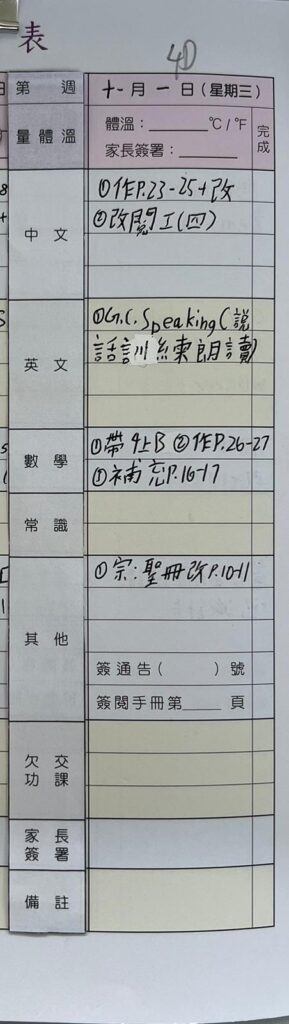 表
4D
第 週
十一月一日(星期三)
量體溫
體溫：______°C/°F
家長簽署：______
完成
中文
①作P.23-25+改
②改閱工(四)
英文
①G.C. Speaking(說
話訓練朗讀)
數學
①帶4上B ②作P.26-27
①補充P.16-17
常識
其他
①宗:聖冊改P.10-11
簽通告( )號
簽閱手冊第____頁
欠交
功課
家長
簽署
備註